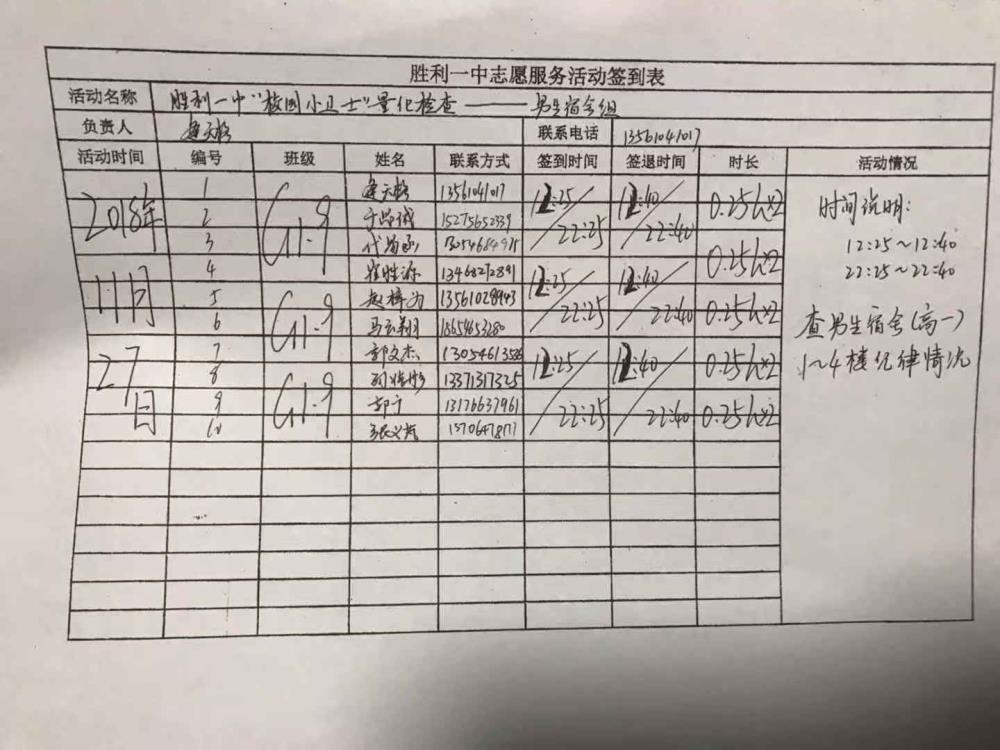 胜利一中志愿服务活动签到表
活动名称 胜利一中“校园小卫士”量化检查——男生宿舍组
负责人 联系电话 13561041017
活动时间 编号 班级 姓名 联系方式 签到时间 签退时间 时长 活动情况
2018年 11月 27日
1 G1.9 13561041017 12:25/22:25 12:40/22:40 0.25h×2
2 15275652339
3 0.25h×2
4 13468272891 12:25/22:25 12:40/22:40
5 G1.9 13561028943 0.25h×2
6 18654653280
7 郭文杰 12:25/22:25 12:40/22:40 0.25h×2
8 G1.9 13371317325
9 郭宁 13176637961 0.25h×2
10
时间说明:
12:25~12:40
22:25~22:40
查男生宿舍(高一)
1~4楼纪律情况